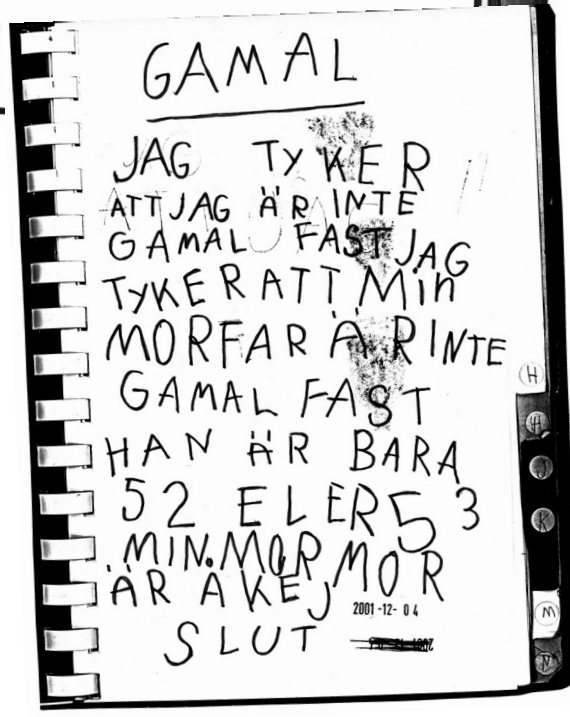 GAMAL
JAG TYKER
ATT JAG ÄR INTE
GAMAL FAST JAG
TYKER ATT Min
MORFAR ÄR INTE
GAMAL FAST
HAN ÄR BARA
52 ELER 53
.MIN.MORMOR
ÄR AKEJ
2001-12-04
SLUT
H
H
J
K
M
N